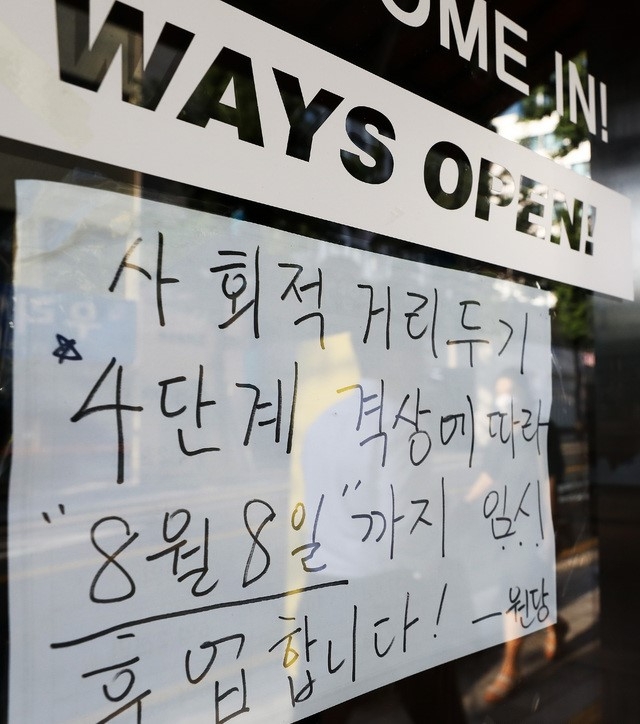 OME IN!
WAYS OPEN!
사회적 거리두기
4단계 격상에 따라
"8월 8일"까지 임시
휴업합니다! - 원당